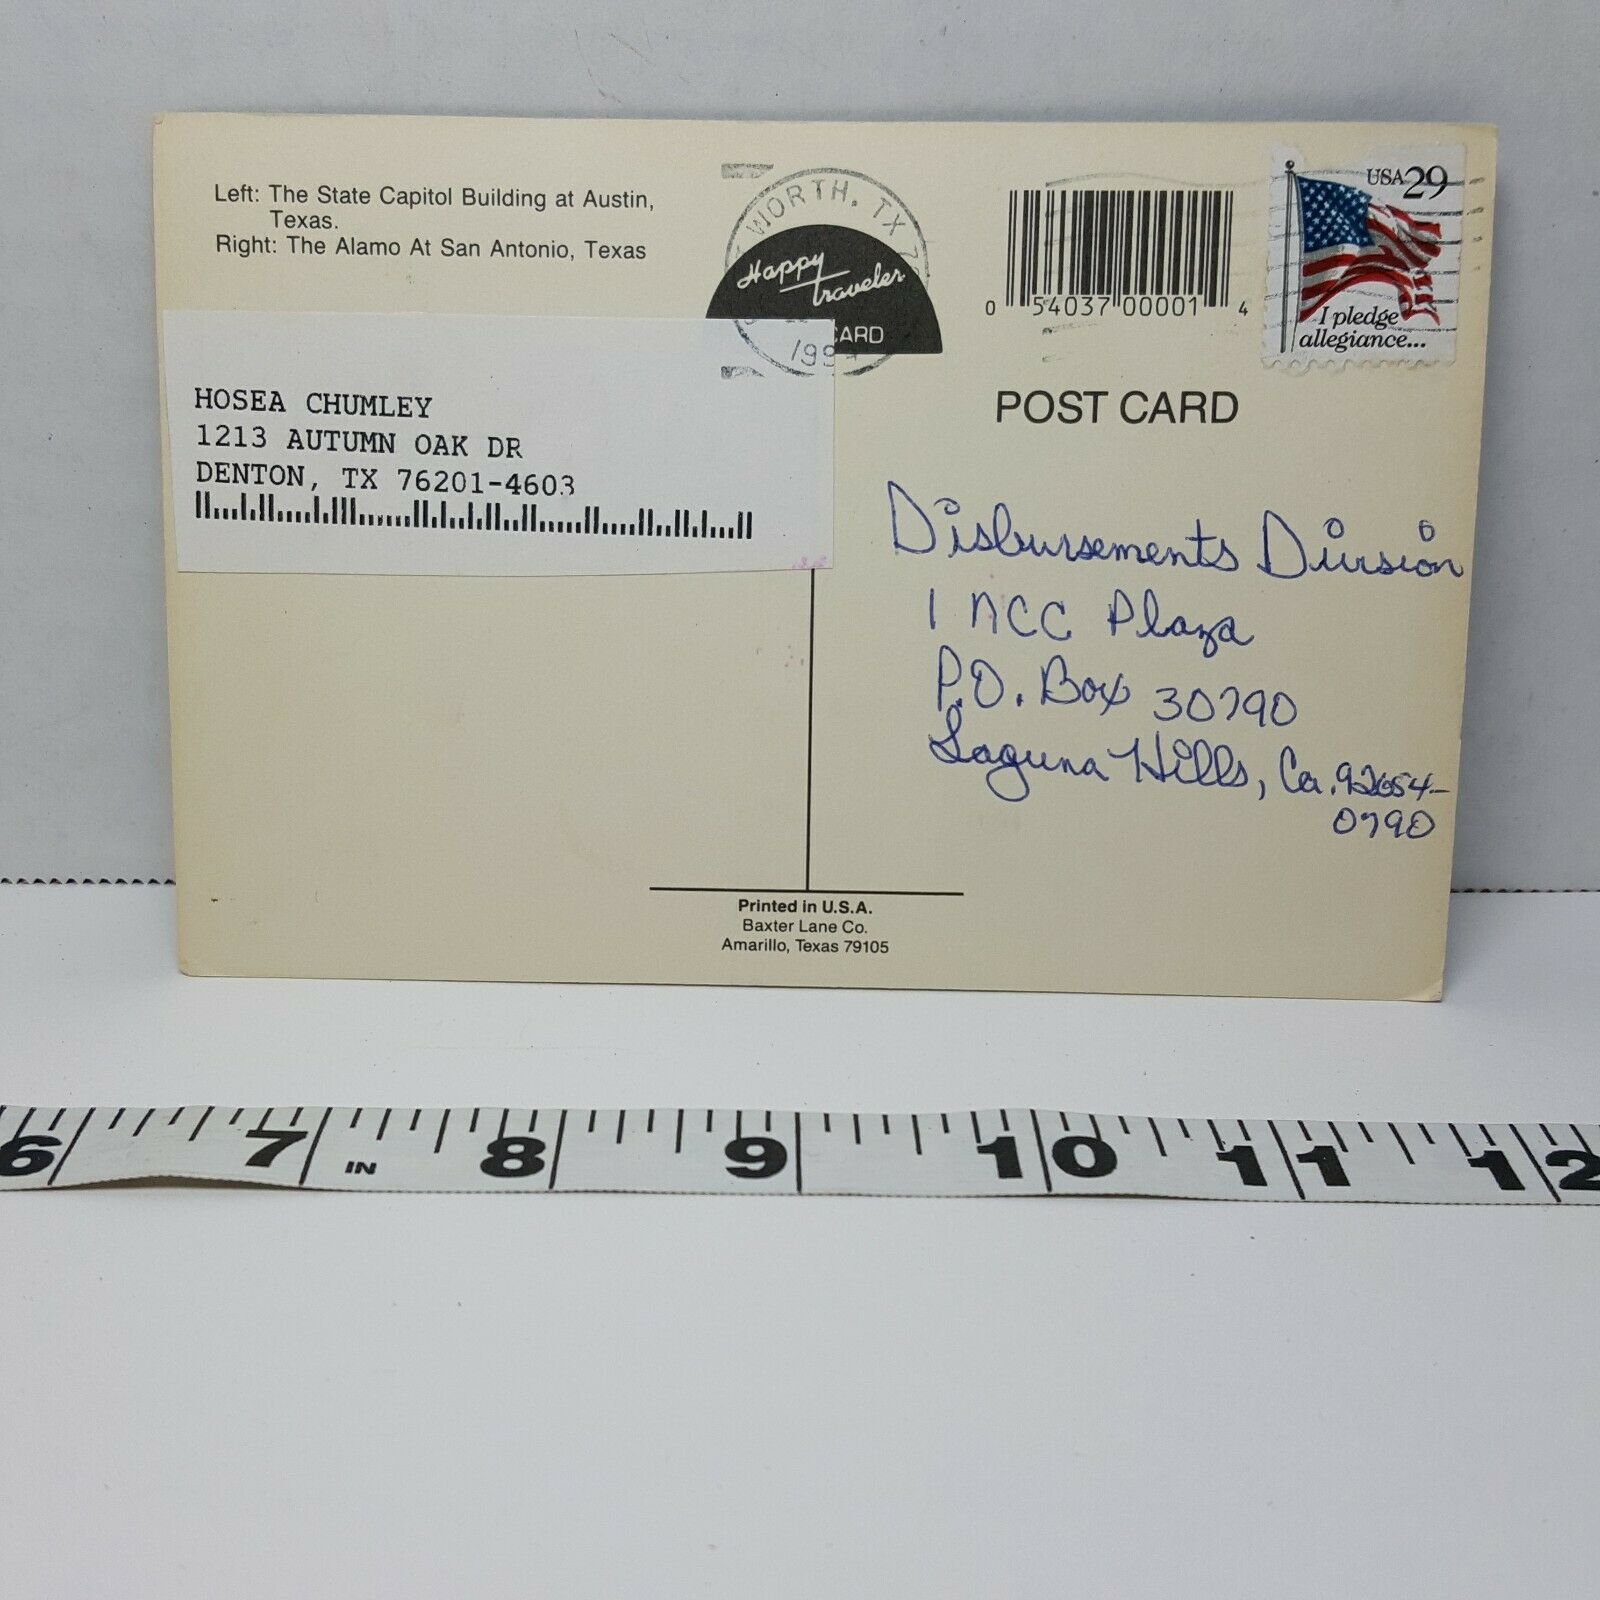 Left: The State Capitol Building at Austin,
Texas.
Right: The Alamo At San Antonio, Texas
WORTH, TX
Happy
Traveler
CARD
199
0 54037 00001 4
USA 29
I pledge
allegiance...
POST CARD
HOSEA CHUMLEY
1213 AUTUMN OAK DR
DENTON, TX 76201-4603
Disbursements Division
1 NCC Plaza
P.O. Box 30790
Laguna Hills, Ca. 92654-
0790
Printed in U.S.A.
Baxter Lane Co.
Amarillo, Texas 79105
6 7 IN 8 9 10 11 12